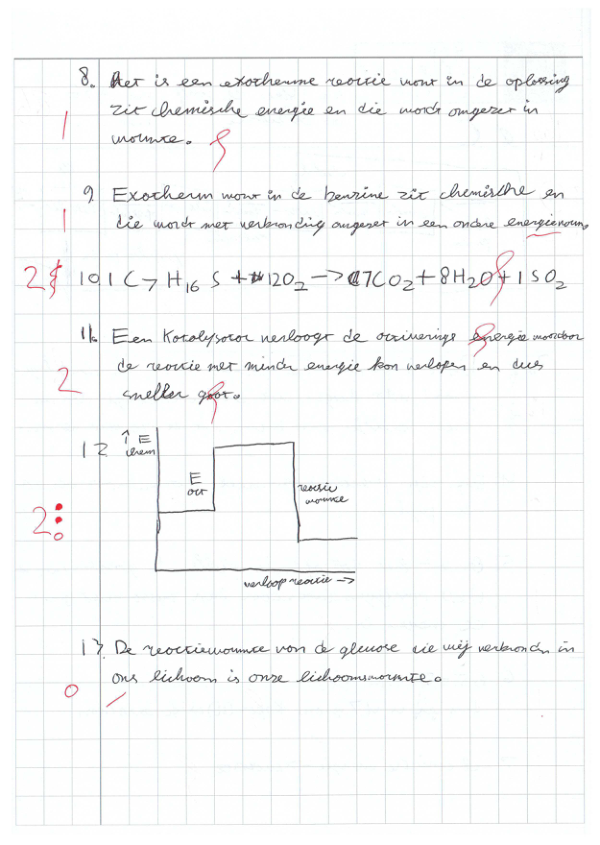 8. Het is een exotherme reactie want in de oplossing
zit chemische energie en die wordt omgezet in
warmte.
1
9 Exotherm want in de benzine zit chemische en
die wordt met verbranding omgezet in een andre energievorm
1
10 1 C7 H16 S + 12O2 —> 7CO2 + 8H2O + 1 SO2
2
11. Een Katalysator verlaagt de activerings energie waardoor
de reactie met minder energie kan verlopen en dus
sneller gaat.
2
12 ↑ E
chem
E
act
reactie
warmte
2
verloop reactie —>
13. De reactiewarmte van de glucose die wij verbranden in
ons lichaam is onze lichaamswarmte.
0